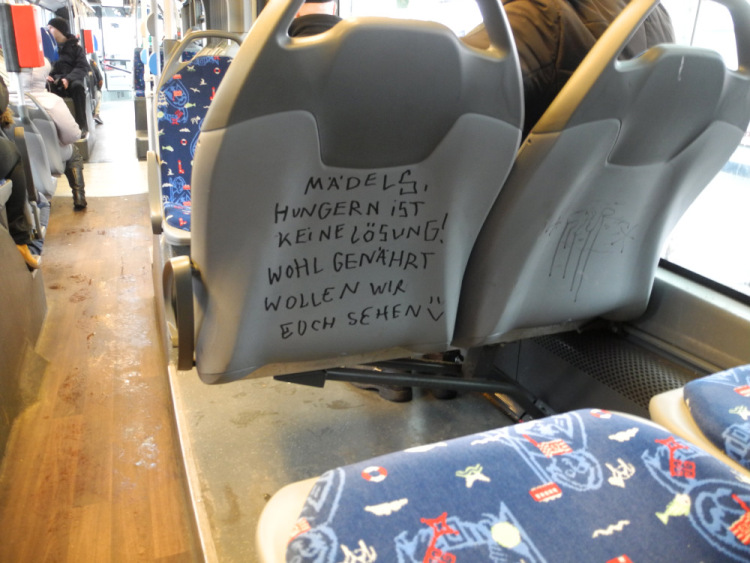 MÄDELS,
HUNGERN IST
KEINE LÖSUNG!
WOHL GENÄHRT
WOLLEN WIR
EUCH SEHEN